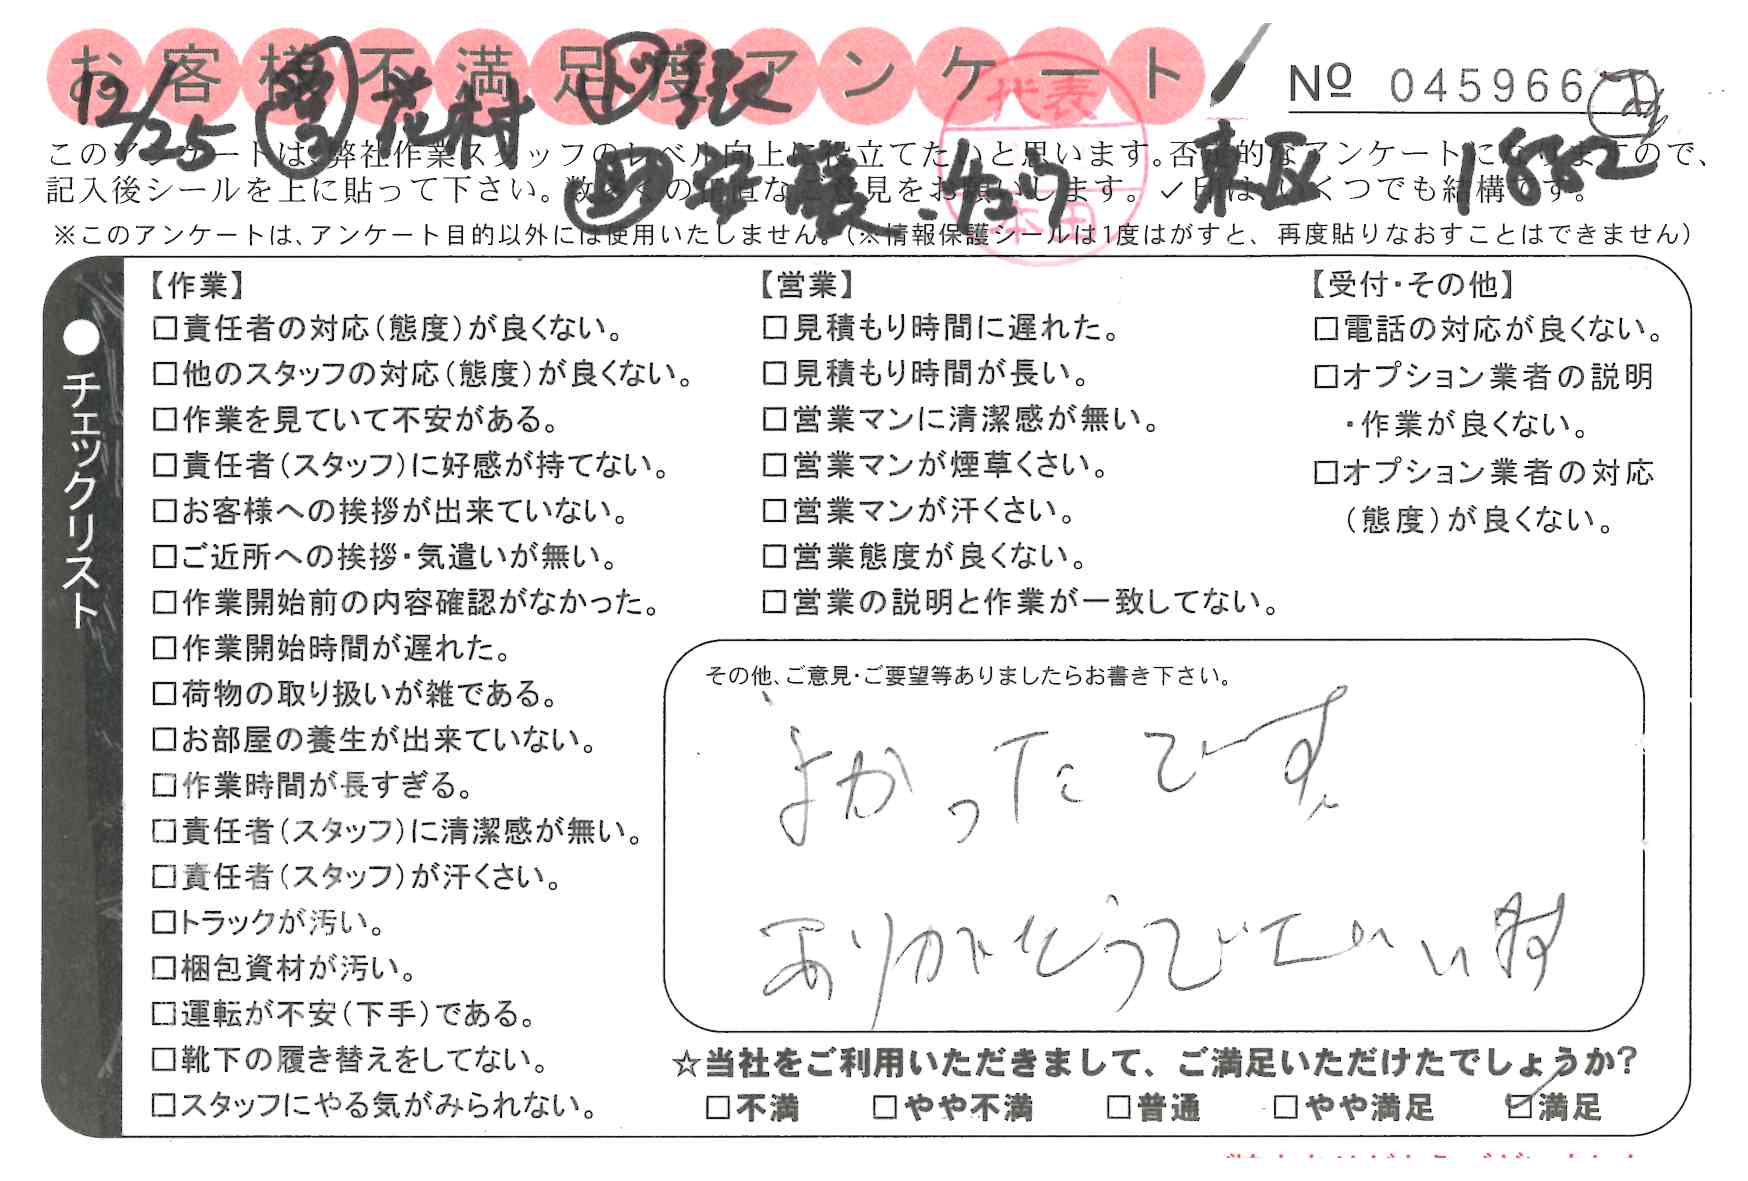 お客様不満足度アンケート
№ 045966
12/25 花村
このアンケートは、弊社作業スタッフのレベル向上に役立てたいと思います。否定的なアンケートになりますので、
記入後シールを上に貼って下さい。数多くの正直なご意見をお願いします。✓印はいくつでも結構です。
東区 1882
代表
本田
※このアンケートは、アンケート目的以外には使用いたしません。（※情報保護シールは1度はがすと、再度貼りなおすことはできません）
●チェックリスト
【作業】
□責任者の対応（態度）が良くない。
□他のスタッフの対応（態度）が良くない。
□作業を見ていて不安がある。
□責任者（スタッフ）に好感が持てない。
□お客様への挨拶が出来ていない。
□ご近所への挨拶・気遣いが無い。
□作業開始前の内容確認がなかった。
□作業開始時間が遅れた。
□荷物の取り扱いが雑である。
□お部屋の養生が出来ていない。
□作業時間が長すぎる。
□責任者（スタッフ）に清潔感が無い。
□責任者（スタッフ）が汗くさい。
□トラックが汚い。
□梱包資材が汚い。
□運転が不安（下手）である。
□靴下の履き替えをしてない。
□スタッフにやる気がみられない。
【営業】
□見積もり時間に遅れた。
□見積もり時間が長い。
□営業マンに清潔感が無い。
□営業マンが煙草くさい。
□営業マンが汗くさい。
□営業態度が良くない。
□営業の説明と作業が一致してない。
【受付・その他】
□電話の対応が良くない。
□オプション業者の説明
・作業が良くない。
□オプション業者の対応
（態度）が良くない。
その他、ご意見・ご要望等ありましたらお書き下さい。
よかったです
ありがとうございます
☆当社をご利用いただきまして、ご満足いただけたでしょうか？
□不満 □やや不満 □普通 □やや満足 ☑満足